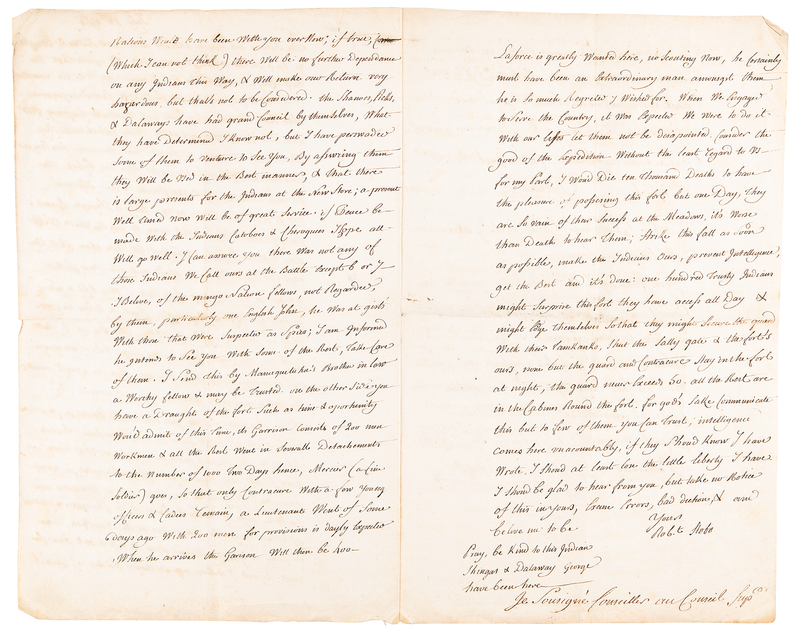 Nations Wou'd have been With you over Now; if true,
(Which I can not think) there Will be no further Dependance
on any Indians this Way, & Will make our Return very
hazardous, but that's not to be Considered. the Shanoes, Picks,
& Dalaways have had grand Council by themselves, What
they have Determind I know not, but I have perswaded
Some of them to Venture to See You, By assureing them
they Will be Used in the Best manner, & that there
is large presents for the Indians at the New Store; a present
Well timed now Will be of great Service. if Peace be
made With the Indians Catobas & Cheroquees I hope all
Will go well. I Can assure you there Was not any of
those Indians We Call ours at the Battle Except 6 or 7
I Beleve, of the mingo Nation fellows, not Regarded,
by them, particularly one English John, he Was at
With those that Were Suspected as Spies; I am Informed
he intends to See You With Some of the Rest, Take Care
of them. I Send this by Manaquetuha's Brother in law
a Worthy fellow & may be Trusted. on the other Side you
have a Draught of the fort, Such as time & oportunity
Wou'd admit of this time, its Garrison Consists of 200 men
Workmen & all the Rest Went in Severalls Detachments
to the Number of 1000 Two Days hence, Mercier (a fine
Soldier) goes, So that only Contracure With a few Young
officers & Cadets Remain, a Lieutenant Went of Some
days ago With 200 men for provisions is dayly Expected
When he arrives the Garison Will then be 400
Laforce is greatly Wanted here, no Scouting Now, he Certainly
must have been an Extraordinary man amongst them
he is So much Regreted & Wished for. When We Engaged
to Serve the Country, it Was Expected We Were to do it
With our lifes let them not be disapointed. Consider the
good of the Expedition Without the least Regard to Us
for my Part, I Wou'd Die ten Thousand Deaths to have
the pleasure of possesing this fort but one Day, They
are So vain of their Success at the Meadows, it's Worse
than Death to hear them; Strike this fall as Soon
as possible, make the Indians Ours, prevent Intelligence,
get the Best and it's done: one hundred Trusty Indians
might Surprise this fort they have access all Day &
might themselves So that they might Secure the guard
With their Tamkanko, Shut the Sally gate & the fort's
ours, none but the guard and Contracure Stay in the fort
at night, the guard never Exceeds 50. all the Rest are
in the Cabines Round the fort. for god's Sake Communicate
this but to few of them you Can Trust; intelligence
Comes here unaccountably, if they Should know I have
Wrote. I Shou'd at least lose the little liberty I have
I Shou'd be glad to hear from you, but take no Notice
of this in yours, Excuse Errors, bad diction, & and
beleve me to be
Yours
Rob.t Stobo
Pray, be kind to this Indian
Shingas & Dalaway George
have been here
Je Sousigné Conseiller au Conseil